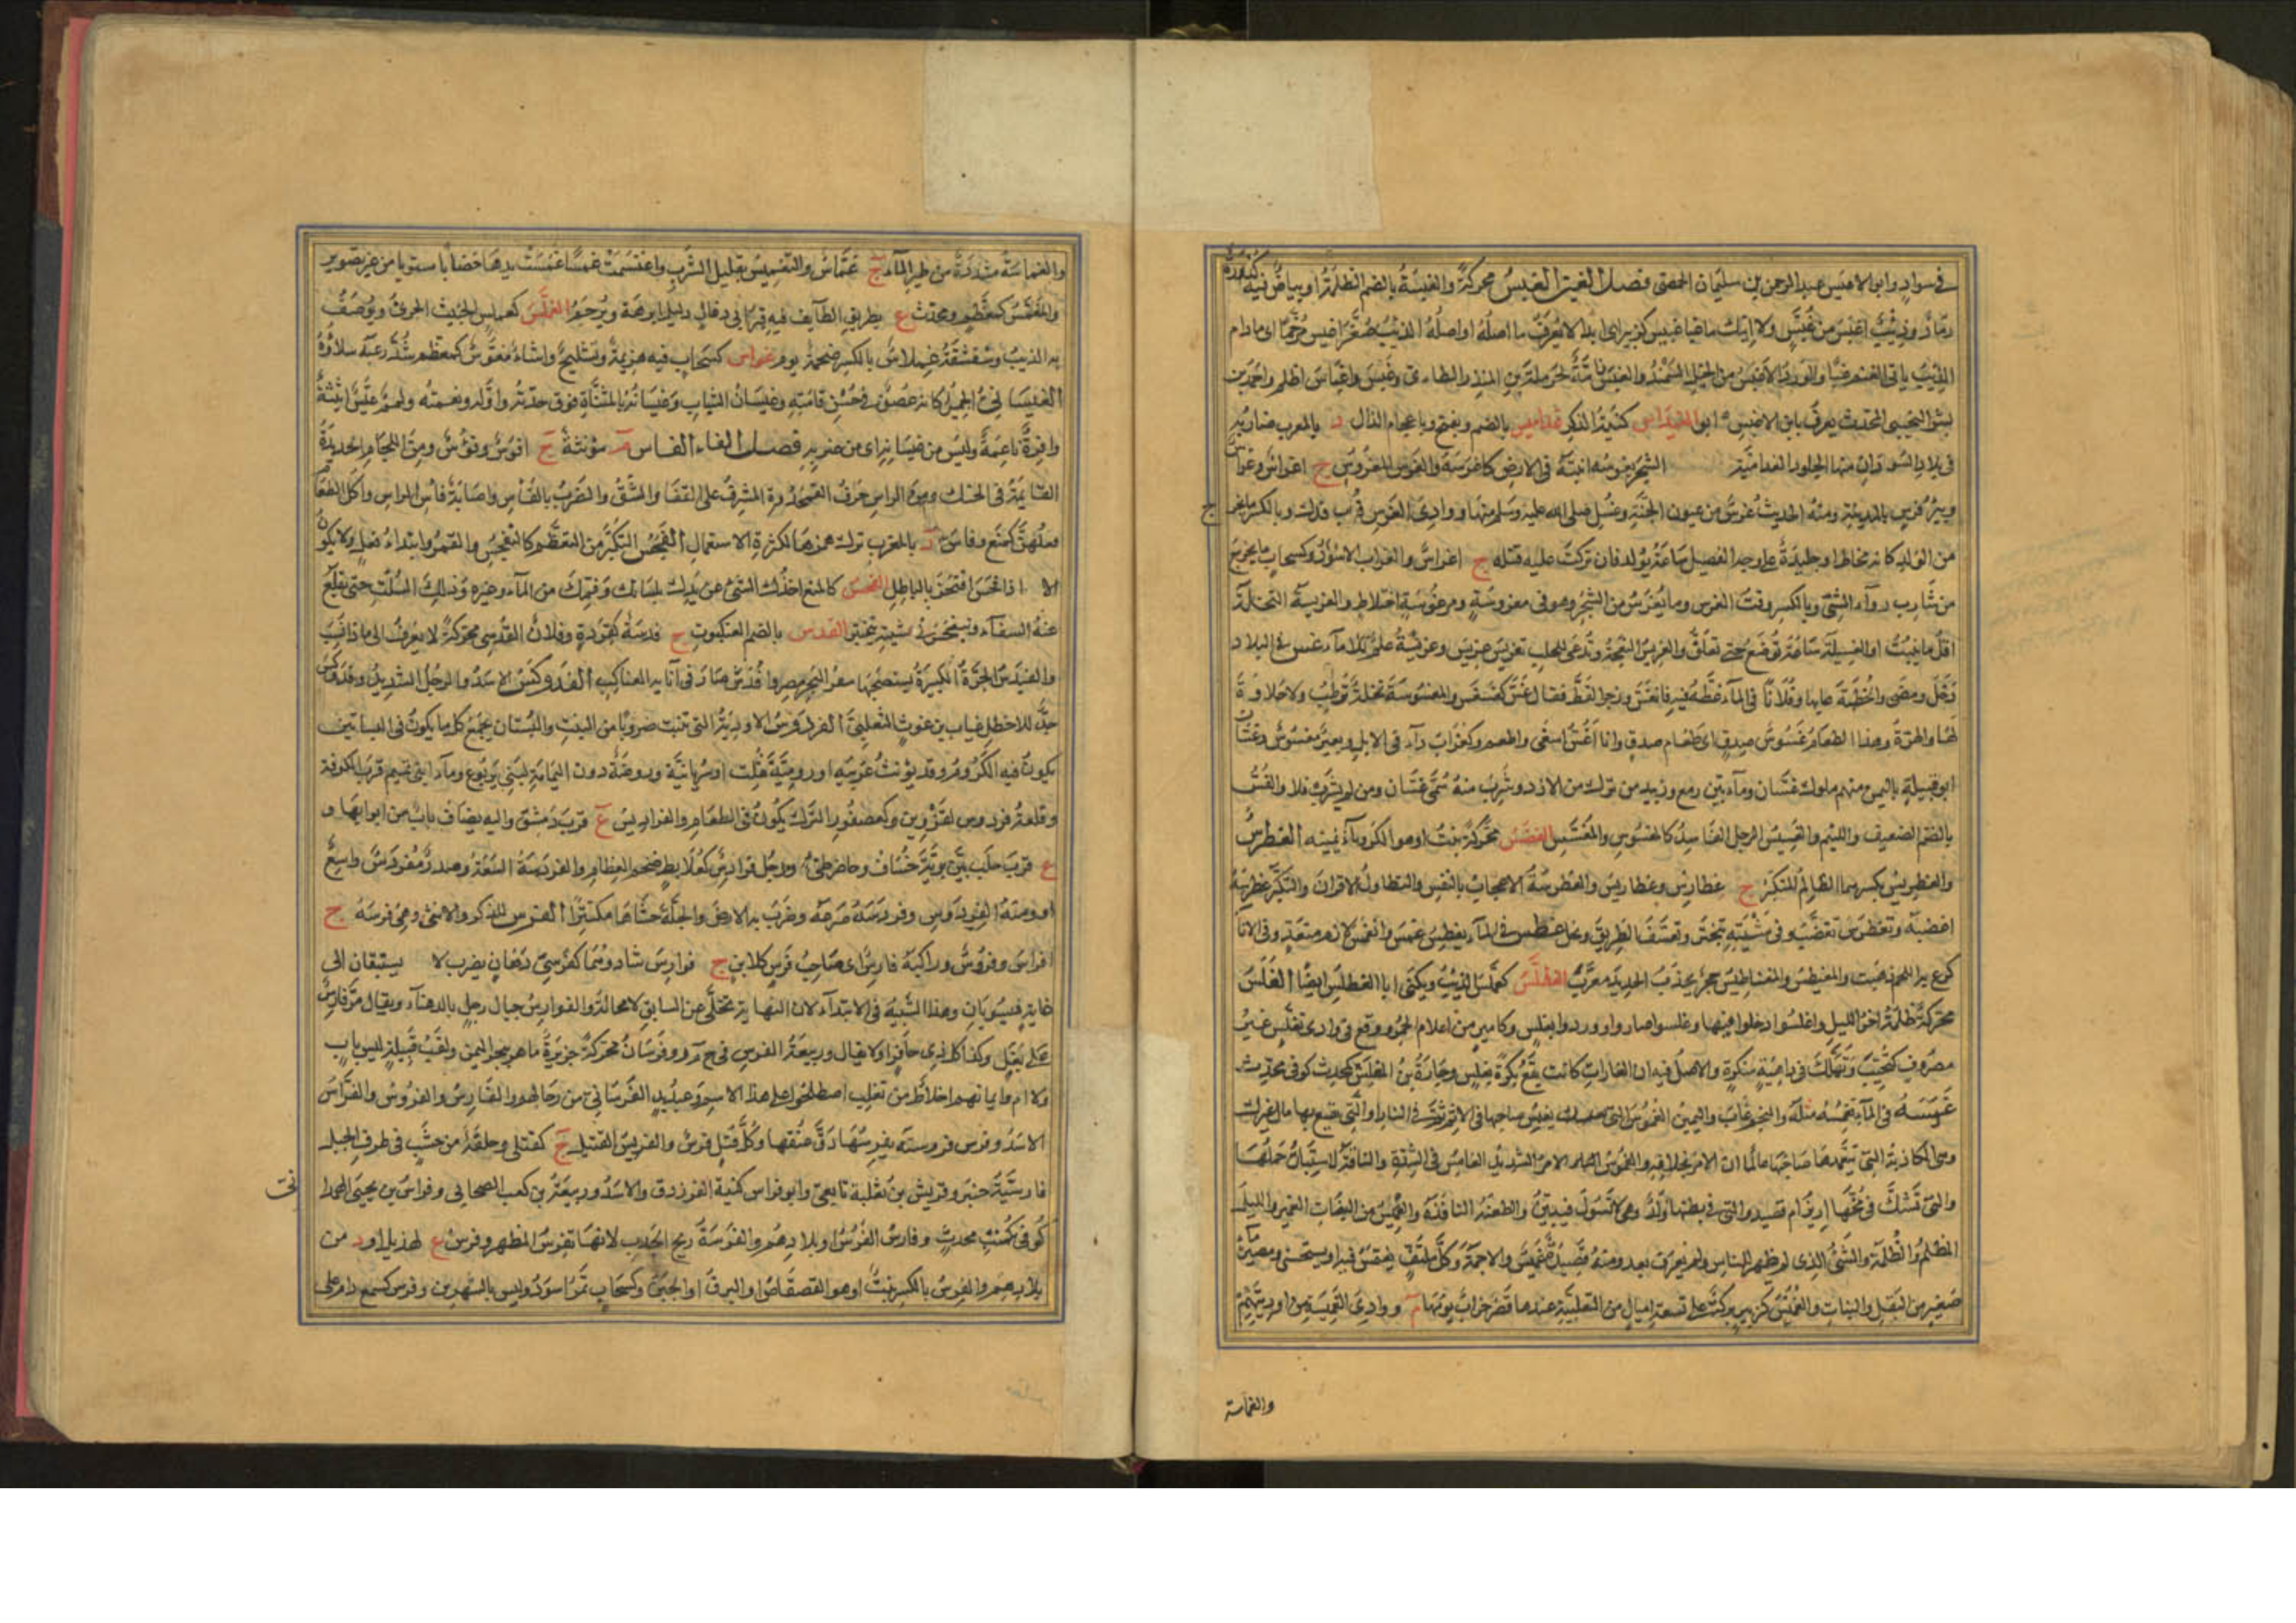 في سواد وابو الاعيس عبد الرحمن بن سليمان الحمصى فصل الغين الغبس محركة والغبسة بالضم الظلمة او بياض فيه كدورة
رماد وذئب اغبس من غبس ولا اتيك ما غبا غبيس كزبير اى ابدا لا يعرف ما اصله او اصله الذئب صغر اغبس مرخما اى مادام
الذئب ياتى الغنم غبا والورد الاغبس من الخيل السمند والغبس ناقة لحرملة بن المنذر الطاءى وغبس واغباس اظلم واحمد بن
بشر التجيبى المحدث يعرف بابن الاغبس ابو الغيداس كنية الذكر غدامس بالضم ويفتح وباعجام الذال د بالمغرب ضاربة
فى بلاد السودان منها الجلود الغدامسية الشجر يغرسه اثبته فى الارض كاغرسه والغرس المغروس ج اغراس وغراس
وبير غرس بالمدينة ومنه الحديث غرس من عيون الجنة وغسل صلى الله عليه وسلم منها ووادى الغرس قرب فدك وبالكسر ما يخرج
من الولد كانه مخاط او جليدة على وجه الفصيل ساعة يولد فان تركت عليه قتله ج اغراس والغراب الاسود وكسحاب ما يخرج
من شارب دوآء المشى وبالكسر وقت الغرس وما يغرس من الشجر وهو فى مغروسة ومرغوسة اختلاط والغريسة النخلة
اول ما تنبت او الفسيلة ساعة توضع حتى تعلق والغريس النعجة وتدعى للحلب بغريس غريس وغريسة علم للاماء غس فى البلاد
دخل ومضى والخطبة عابها وفلانا فى المآء غطه فيه فانغس وزجر القط فقال غس كغسغس والمغسوسة نخلة ترطب ولا حلاوة
لها والهرة وهذا الطعام غسوس صدق اى طعام صدق وانا اغس اسقى واطعم وكغراب دآء فى الابل وبعير مغسوس وغسان
ابو قبيلة باليمن منهم ملوك غسان ومآء بين رمع وزبيد من نزل من الازد وشرب منه سمى غسان ومن لم يشرب فلا والغس
بالضم الضعيف واللئيم والغسيس الرطب الفاسد كالمغسوس والمغسس الغضس محركة نبت او هو الكرويآء يمنيه الغطرس
والغطريس بكسرهما الظالم المتكبر ج غطارس وغطاريس والغطرسة الاعجاب بالنفس والتطاول على الاقران والتكبر غطرسه
اغضبه وتغطرس تغضب وفى مشيته تبختر وتعسف الطريق وبخل غطس فى المآء يغطس غمس وانغمس لازم متعد وفى الانآ
كرع به اللجم ذهبت والمغنيطس والمغناطيس حجر يجذب الحديد معرب الغطلس كعملس الذئب ويكنى ابا الغطلس ايضا الغلس
محركة ظلمة اخر الليل واغلسوا دخلوا فيها وغلسوا صاروا ووردوا بغلس وكامير من اعلام الحمر ووقع فى وادى تغلس غير
مصروف كتخيب وتهلك فى داهية منكرة والاصل فيه ان الغارات كانت تقع بكرة بغلس وحبارة بن المغلس كمحدث كوفى محدث
غمسه فى المآء يغمسه مقله والنجم غاب واليمين الغموس التى تغمس صاحبها فى الاثم ثم فى النار او التى تقتطع بها مال غيرك
وهى الكاذبة التى يتعمدها صاحبها عالما ان الامر بخلافه والغموس الامر الشديد الغامس فى الشدة والناقة لا يستبان حملها
والتى تشك فى مخها ارير ام قصيد والتى فى بطنها ولد وهى لا تشول فيبين والطعنة النافذة والغميس من النبات الغمير والليل
المظلم والظلمة والشئ الذى لم يظهر للناس ولم يعرف بعد ومنه قصيدة غميس والاجمة وكل ملتف يغتمس فيه او يستخفى ومسيل
صغير من البقل والنبات والغميس كزبير بركة على تسعة اميال من الثعلبية عندها قصر خراب يومها م ووادى الغميسة من اوديتهم
والغماسة
والغماسة مشددة من طير المآء ج غماس والتغميس تقليل الشرب واغتمست غمسا غمست يدها خضابا مستويا من غير تصوير
والمغمس كمعظم ومحدث ع بطريق الطآيف فيه قبر ابى رغال دليل ابرهة ويرجم الغملس كعملس الخبيث الجرئ ويوصف
به الذيب وشقشقة غملاس بالكسر ضخمة يوم غواس كسحاب فيه هزيمة وتشليح واشاء مغوس كمعظم شذب عنه سلاؤه
الغيسا ن الجميل كانه غصن فى حسن قامته وغيسان الشباب وغيسانه بالمثناة فوق حدته واوله ونعمته ولمم غيس اثيثة
وافرة ناعمة وليس من غيسانه اى من ضربه فصل الفاء الفاس م مؤنثة ج افوس وفوس ومن اللجام الحديدة
القآيمة فى الحنك ومن الراس حرف القمحدوة المشرف على القفا والشق والضرب بالفاس واصابة فاس الراس واكل الطعام
وفعلهن كمنع وفاس د بالمغرب ترك همزها لكثرة الاستعمال الفجس التكبر من التعظم كالتفجس والقهر وابتداء فعل ولا يكون
الا اذا فحس افتخر بالباطل الفحس كالمنع اخذك الشئ عن يدك بلسانك وفمك من المآء وغيره وذلك السلت حتى تقلع
عنه السفآء وتفيحس فى مشيته تبختر الفدس بالضم العنكبوت ج فدسة كقردة وفلان الفدسى محركة لا يعرف الى ماذا نسب
والفيدس الجرة الكبيرة يستصحبها سفر البحر مصر وافدس صار فى انايه العناكب الفدوكس الاسد والرجل الشديد وفدوكس
جد للاخطل غياث بن غوث التغلبى الفردوس الاودية التى تنبت ضروبا من النبت والبستان يجمع كل ما يكون فى البساتين
يكون فيه الكروم وقد يؤنث عربية او رومية نقلت او سريانية وروضة دون اليمامة لبنى يربوع ومآء لبنى تميم قرب الكوفة
وقلعة فردوس بقزوين وكعصفور النزل يكون فى الطعام والفراديس ع قرب دمشق واليه يضاف باب من ابوابها و
ع قرب حلب بين برية خساف وحاضر طئ ورجل فرادس كعلابط ضخم العظام والفردسة السعة وصدر مفردس واسع
او ومنه الفردوس وفردسه صرعه وضرب به الارض والجلة حشاها مكتنزا الفرس للذكر والانثى وهى فرسة ج
افراس وفروس وراكبه فارس اى صاحب فرس كلابن ج فوارس شاذ وهما كفرسى رهان يضرب لا يستبقان الى
غاية فيستويان وهذا التشبيه فى الابتدآء لان النهاية تجلى عن السابق لا محالة والفوارس جبال رمل بالدهنآء ويقال مر فارس
على بغل وكذا كل ذى حافر او لا يقال وربيعة الفرس فى ح م ر وفرسان محركة جزيرة ماهرة ببحر اليمن ولقب قبيلة ليس باب
ولا ام وانما هم اخلاط من تغلب اصطلحوا على هذا الاسم وعبديد الفرسانى من رجالهم والفارس والفروس والفراس
الاسد وفرس فريسته يفرسها دق عنقها وكل قتل فرس والفريس القتيل ج كقتلى وحلقة من خشب فى طرف الحبل
فارسية حنبر وفريس بن ثعلبة تابعى وابو فراس كنية الفرزدق والاسد وربيعة بن كعب الصحابى وفراس بن يحيى الهمدا
كوفى مكتب محدث وفارس الفرس او بلادهم والفرسة ريح الحدب لانها تفرس الظهر وفرس ع لهذيل او د من
بلادهم والفرس بالكسر نبت او هو القصقاص او البروق او الحبن وكسحاب تمر اسود وليس بالشهريز وفرس كسمع دام على